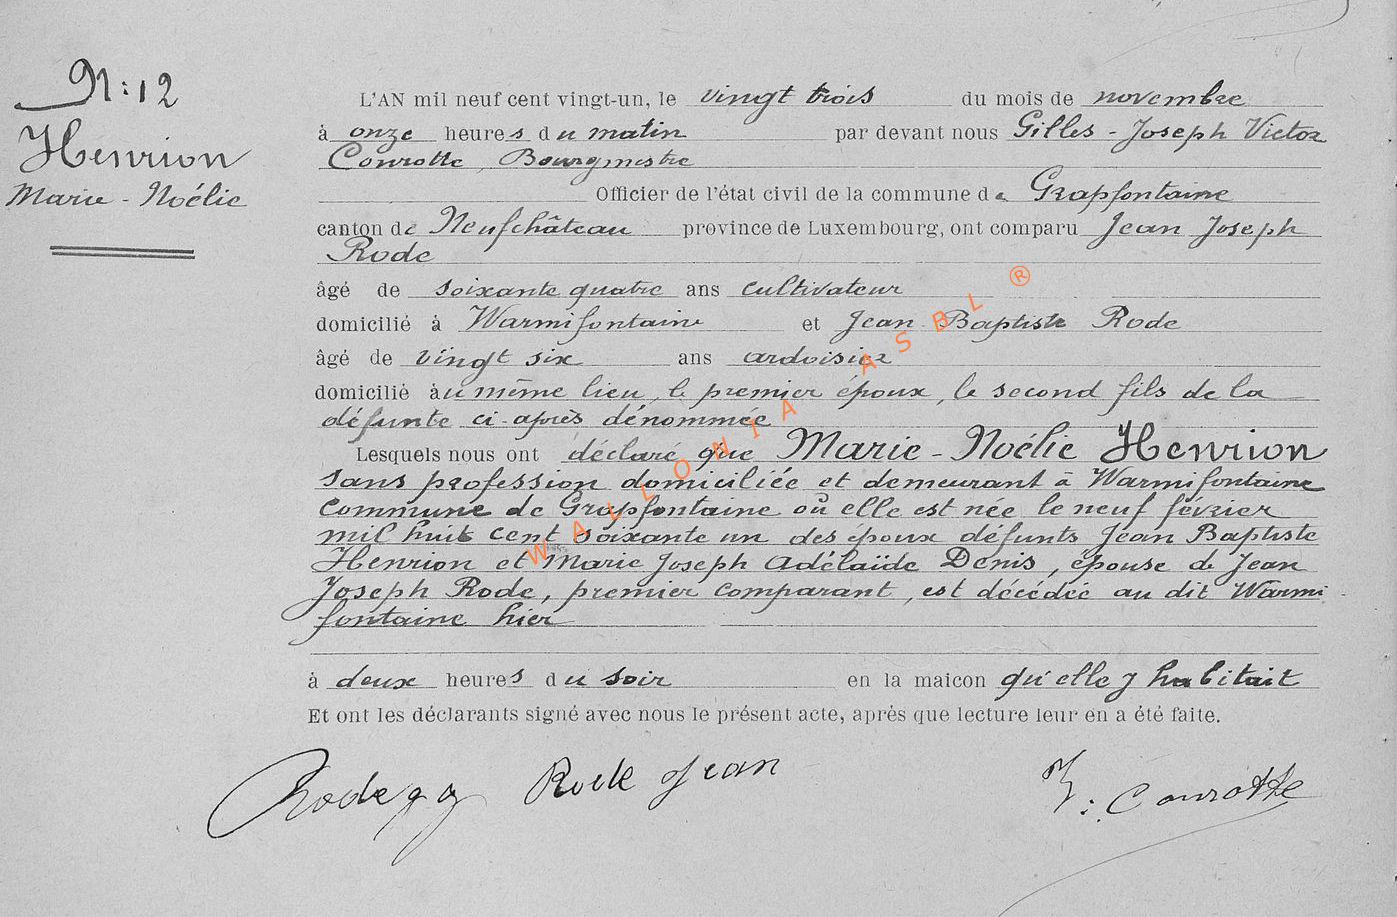 N: 12
Henrion
Marie-Noélie
L'AN mil neuf cent vingt-un, le vingt trois du mois de novembre
à onze heures du matin par devant nous Gilles-Joseph Victor
Conrotte, Bourgmestre
Officier de l'état civil de la commune de Grapfontaine
canton de Neufchâteau province de Luxembourg, ont comparu Jean Joseph
Rode
âgé de soixante quatre ans cultivateur
domicilié à Warmifontaine et Jean Baptiste Rode
âgé de vingt six ans ardoisier
domicilié au même lieu, le premier époux, le second fils de la
défunte ci-après dénommée
Lesquels nous ont déclaré que Marie-Noélie Henrion
sans profession domiciliée et demeurant à Warmifontaine
commune de Grapfontaine où elle est née le neuf février
mil huit cent soixante un des époux défunts Jean Baptiste
Henrion et Marie Joseph Adélaïde Denis, épouse de Jean
Joseph Rode, premier comparant, est décédée au dit Warmi
fontaine hier
à deux heures du soir en la maicon qu'elle y habitait
Et ont les déclarants signé avec nous le présent acte, après que lecture leur en a été faite.
Rode Rode Jean V: Conrotte
WALLONIA ASBL ®